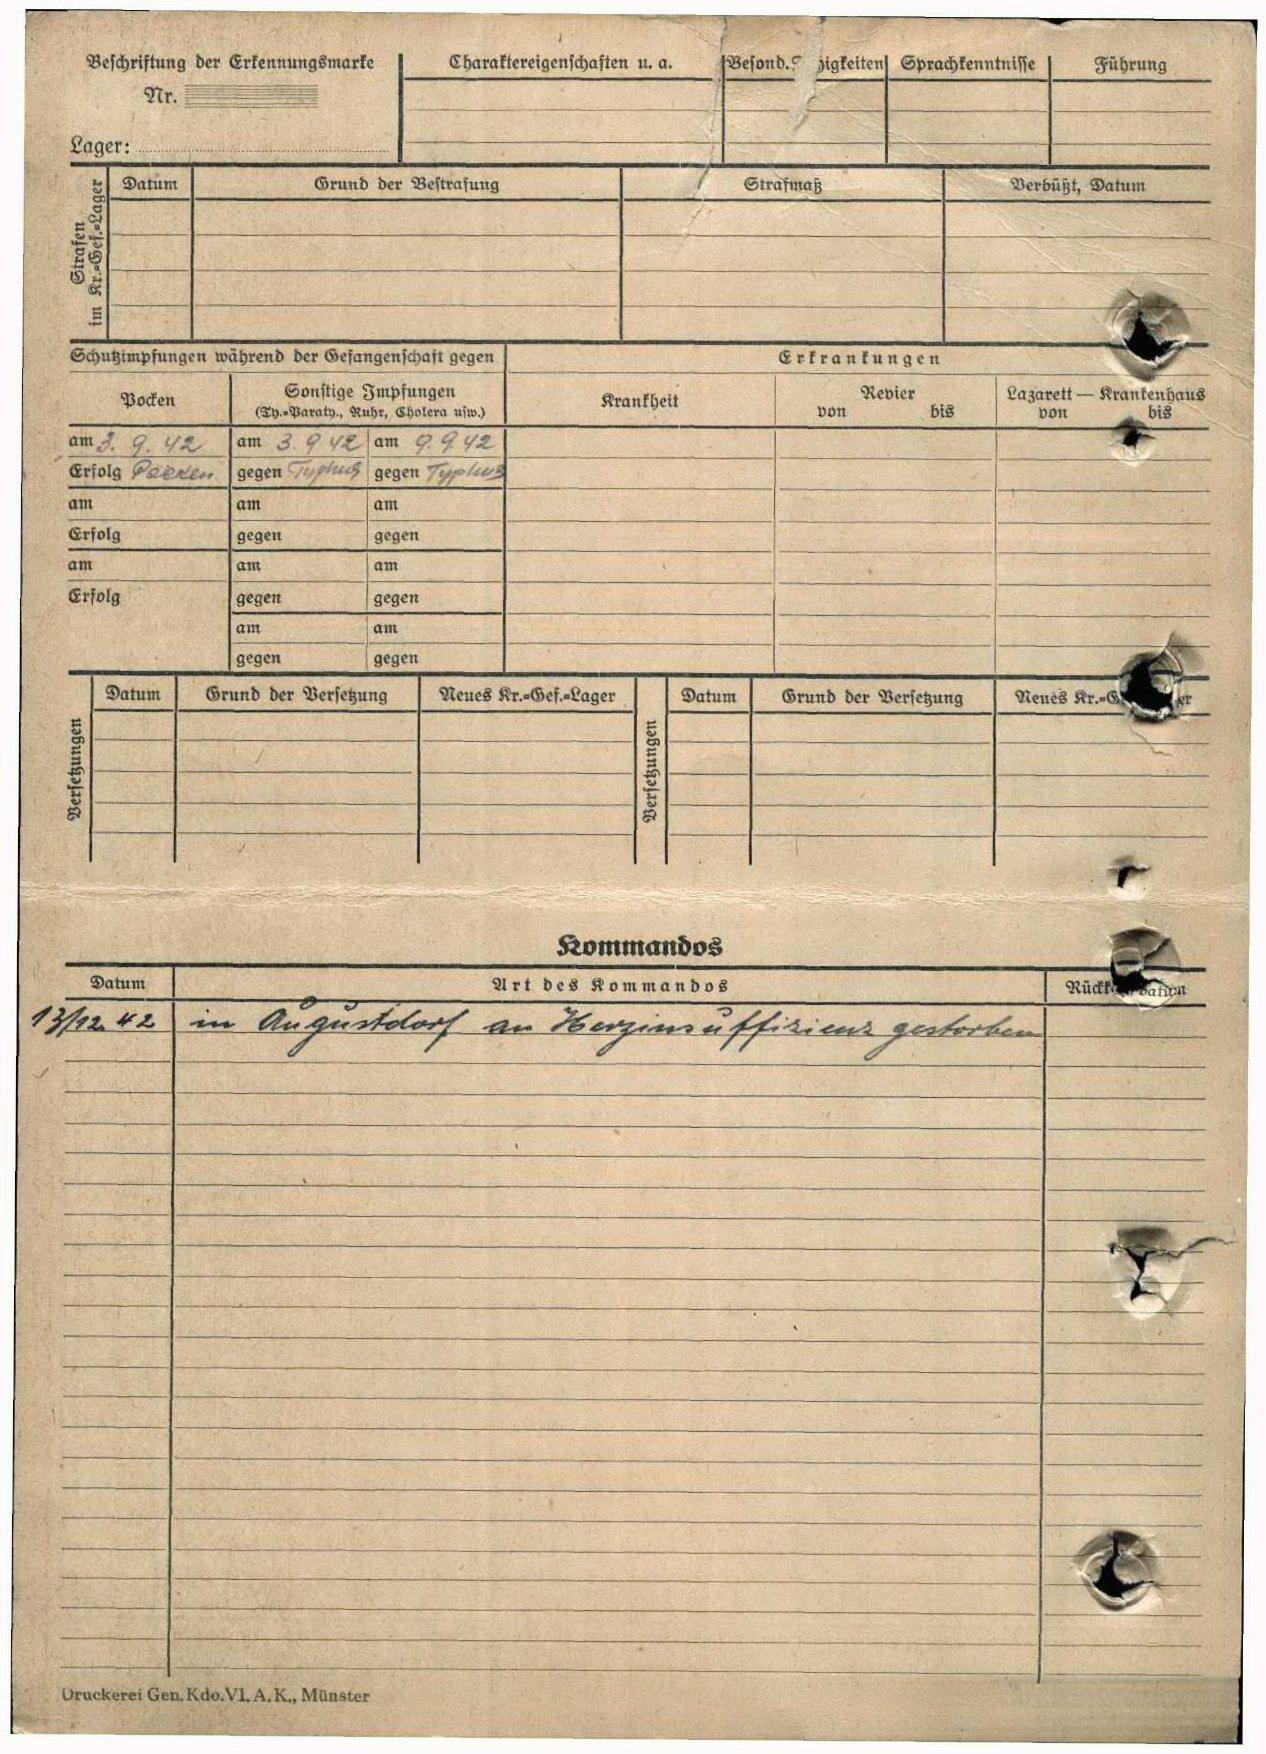 Beschriftung der Erkennungsmarke
Nr.
Lager:
Charaktereigenschaften u. a.
Besond. higkeiten
Sprachkenntnisse
Führung
Strafen
im Kr.=Gef.=Lager
Datum
Grund der Bestrafung
Strafmaß
Verbüßt, Datum
Schutzimpfungen während der Gefangenschaft gegen
Erkrankungen
Pocken
Sonstige Impfungen
(Ty.=Paraty., Ruhr, Cholera usw.)
Krankheit
Revier
von bis
Lazarett — Krankenhaus
von bis
am 3. 9. 42 am 3. 9 42 am 9. 9 42
Erfolg Pocken gegen Typhus gegen Typhus
am am am
Erfolg gegen gegen
am am am
Erfolg gegen gegen
am am
gegen gegen
Versetzungen
Datum
Grund der Versetzung
Neues Kr.=Gef.=Lager
Versetzungen
Datum
Grund der Versetzung
Neues Kr.=G er
Kommandos
Datum
Art des Kommandos
Rückk Datum
13/12. 42 in Augustdorf an Herzinsuffizienz gestorben
Druckerei Gen. Kdo. VI. A. K., Münster